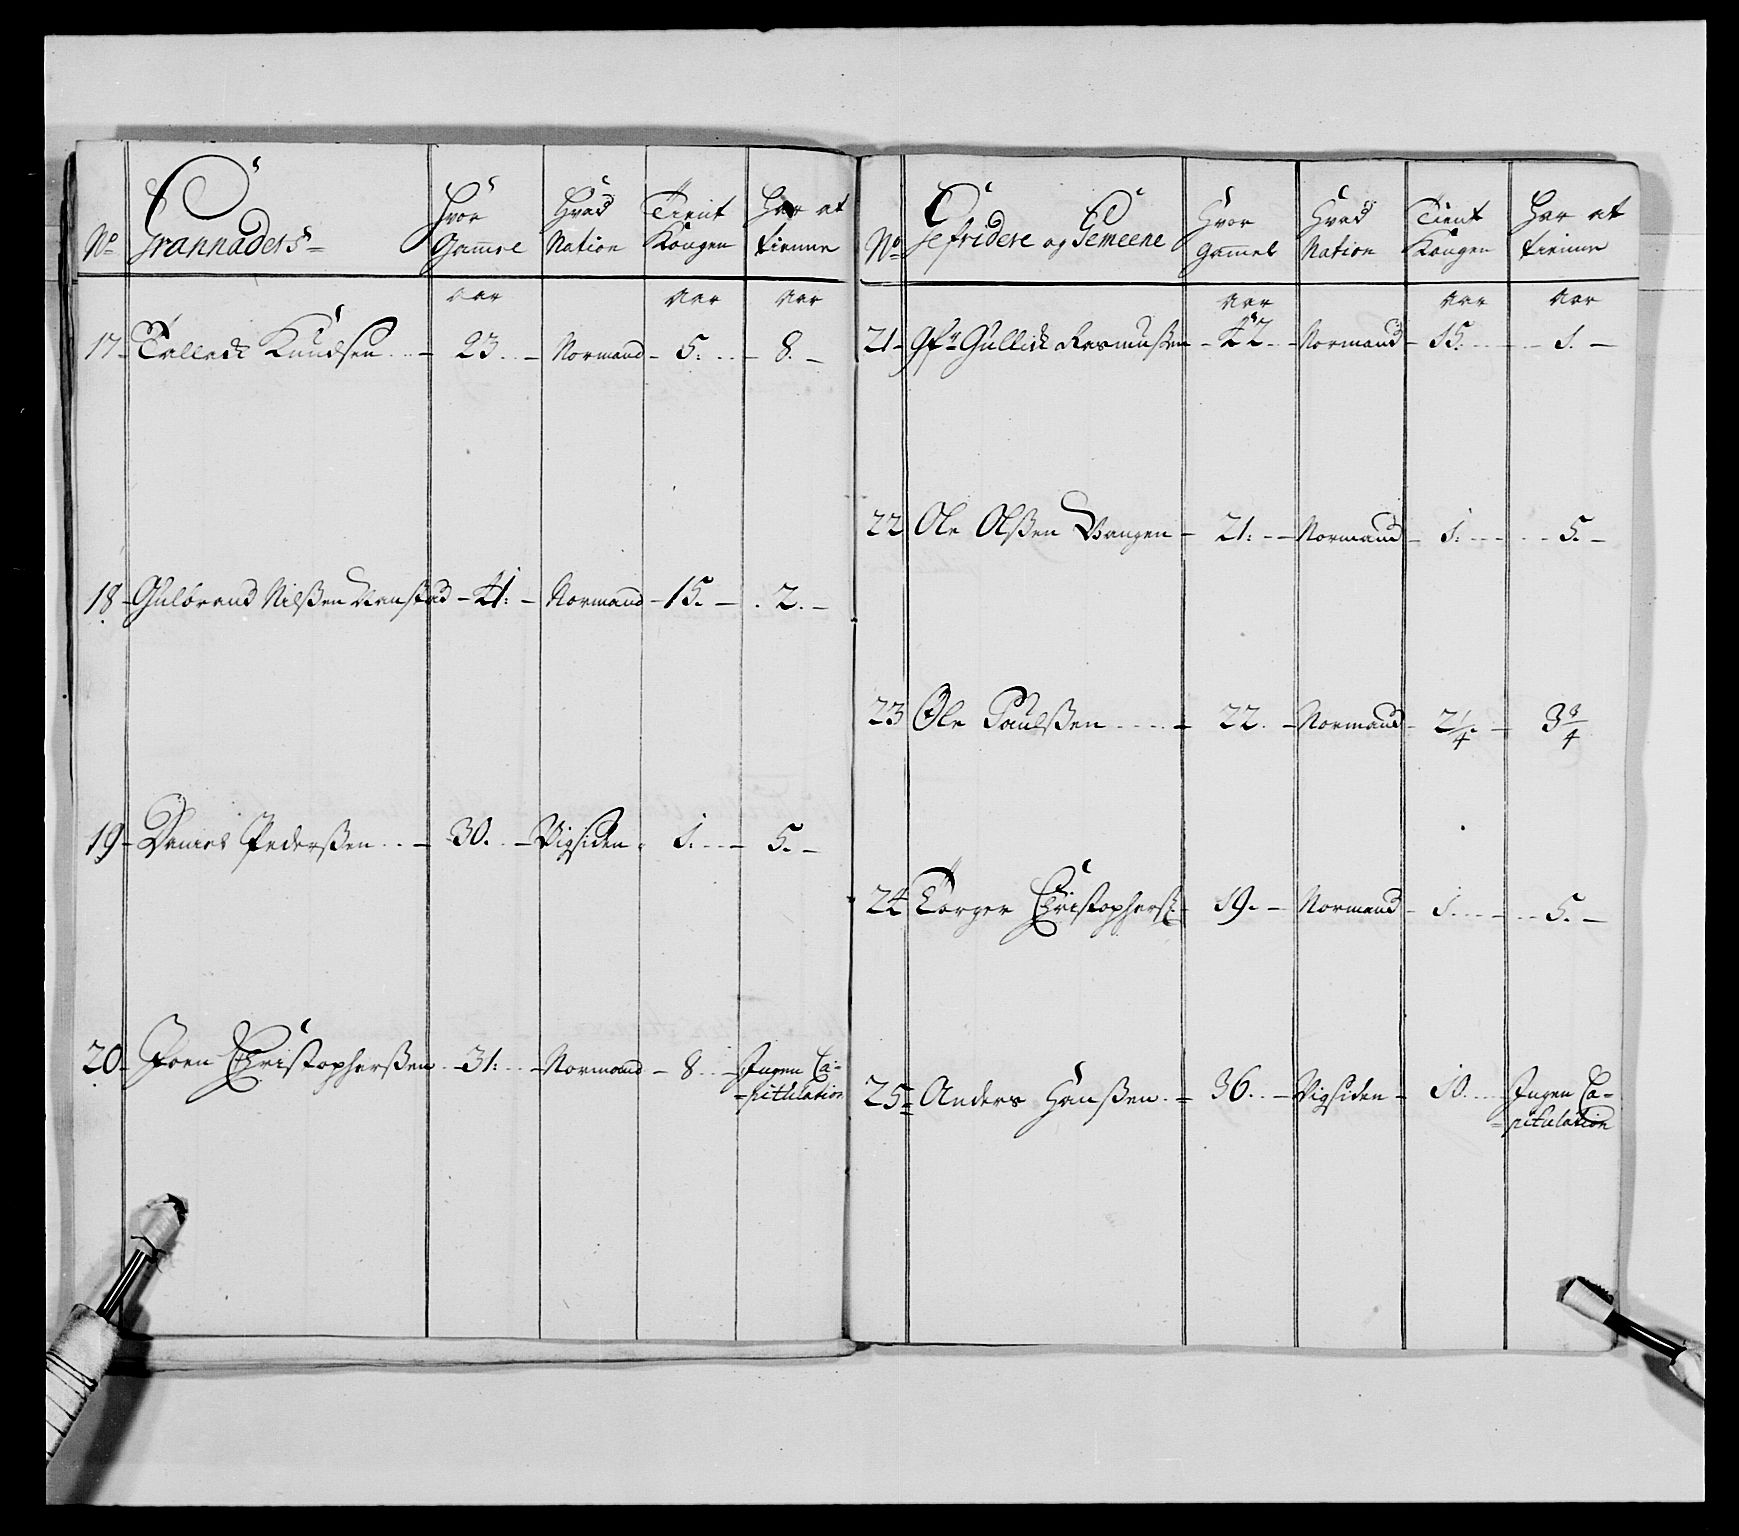 No Grannaders Hvor Gamel Hvad Nation Tient Kongen Har at tienne
aar aar aar
17 Tallack Knudsen 23. Normand 5. 8.
18 Gulbrand Nilßen 41: Normand 15. 2.
19 Daniel Pederßen 30. Viqsiden 1. 5.
20 Joen Christopherßen 31: Normand 8. Ingen Ca=
=pitulation
No Gefridere og Gemeene Hvor Gamel Hvad Nation Tient Kongen Har at tienne
aar aar aar
21 Gfr Gullick Rasmußen 42. Normand 15. 1.
22 Ole Olßen Wangen 21: Normand 1. 5.
23 Ole Paulßen 22. Normand 2 1/4 3 3/4
24 Torger Christophersß: 19. Normand 1. 5.
25 Anders Hanßen 36. Viqsiden 10. Ingen Ca=
=pitulation